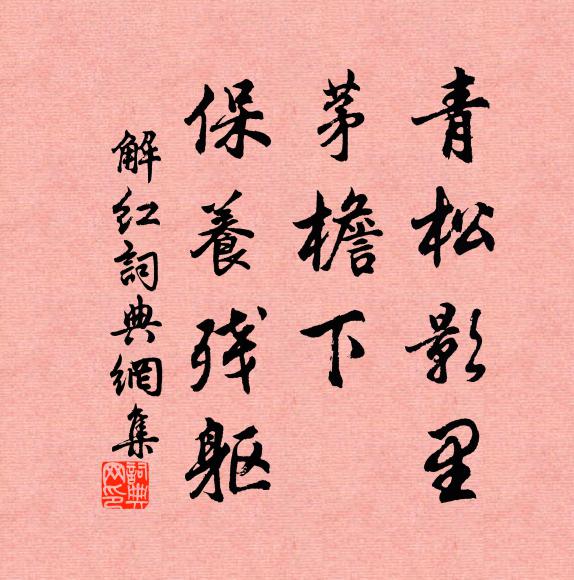 青松影里
茅檐下
保養残躯
解红詞典網集
詞典
网印